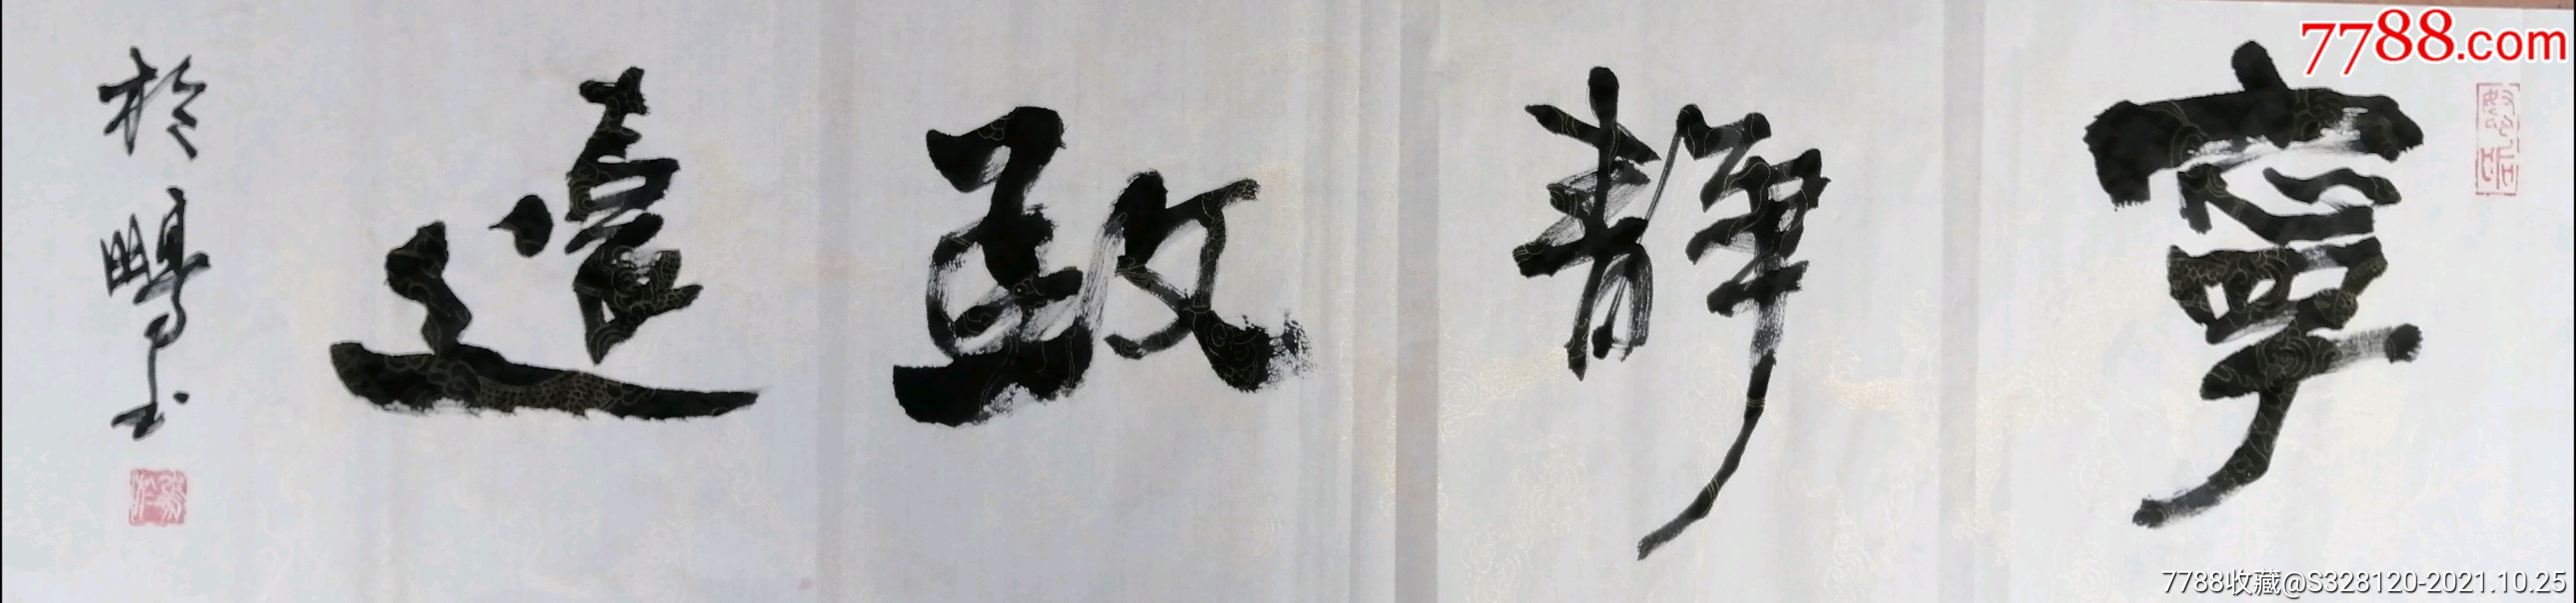 寧靜致遠
於鵬书
7788.com
7788收藏@S328120-2021.10.25